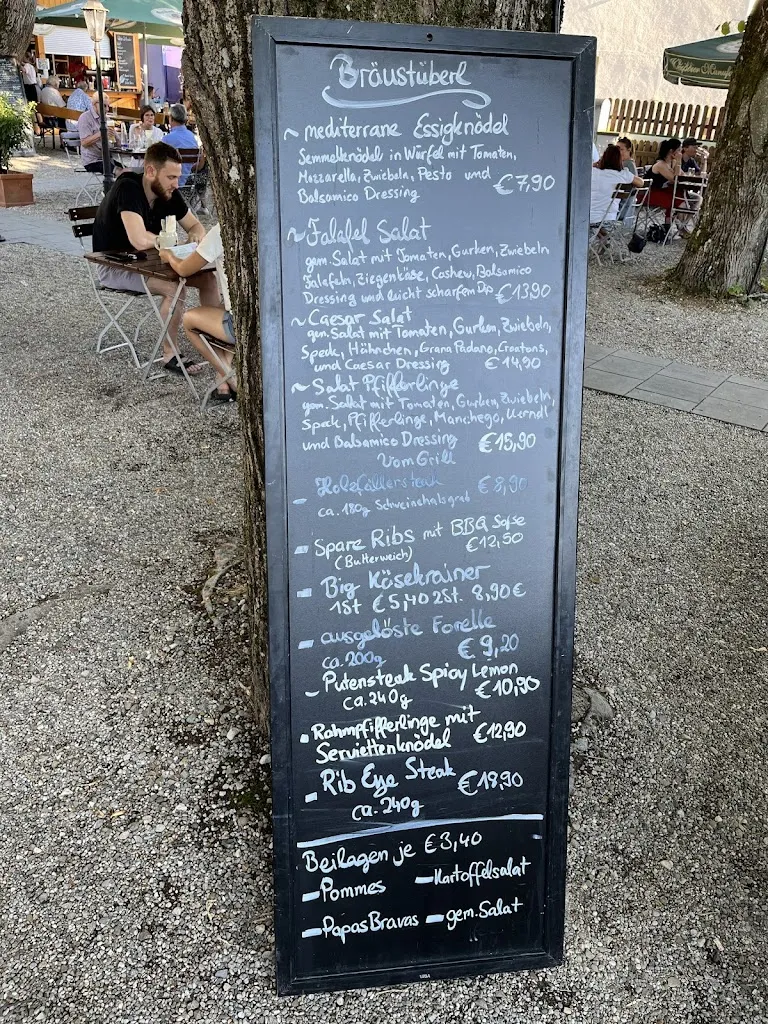 Bräustüberl
~ mediterrane Essigknödel
Semmelknödel in Würfel mit Tomaten,
Mozzarella, Zwiebeln, Pesto und
Balsamico Dressing €7,90
~ Falafel Salat
gem. Salat mit Tomaten, Gurken, Zwiebeln
Falafeln, Ziegenkäse, Cashew, Balsamico
Dressing und leicht scharfem Dip €13,90
~ Caesar Salat
gem. Salat mit Tomaten, Gurken, Zwiebeln,
Speck, Hähnchen, Grana Padano, Croutons,
und Caesar Dressing €14,90
~ Salat Pfifferlinge
gem. Salat mit Tomaten, Gurken, Zwiebeln,
Speck, Pfifferlinge, Manchego,
und Balsamico Dressing €15,90
Vom Grill
- Holzfällersteak €8,90
ca. 180g Schweinehalsgrat
- Spare Ribs mit BBQ Soße
(Butterweich) €12,50
- Big Käsekrainer
1St €5,40 2St. 8,90€
- ausgelöste Forelle
ca. 200g €9,20
- Putensteak Spicy Lemon
ca. 240g €10,90
- Rahmpfifferlinge mit
Serviettenknödel €12,90
- Rib Eye Steak
ca. 240g €19,90
Beilagen je €3,40
- Pommes - Kartoffelsalat
- Papas Bravas - gem. Salat